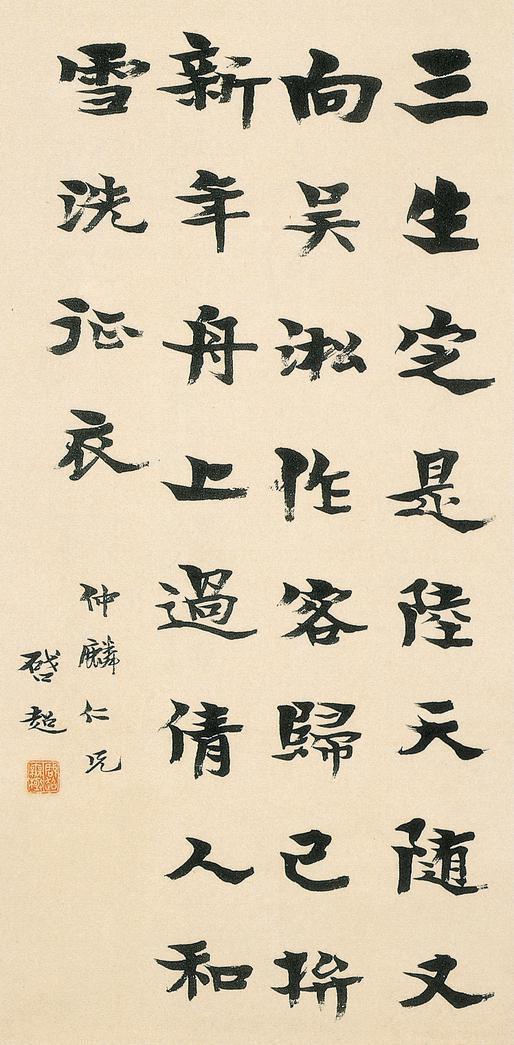 三生定是陸天随又
向吴淞作客歸已拚
新年舟上過倩人和
雪洗征衣
仲麟仁兄
啓超